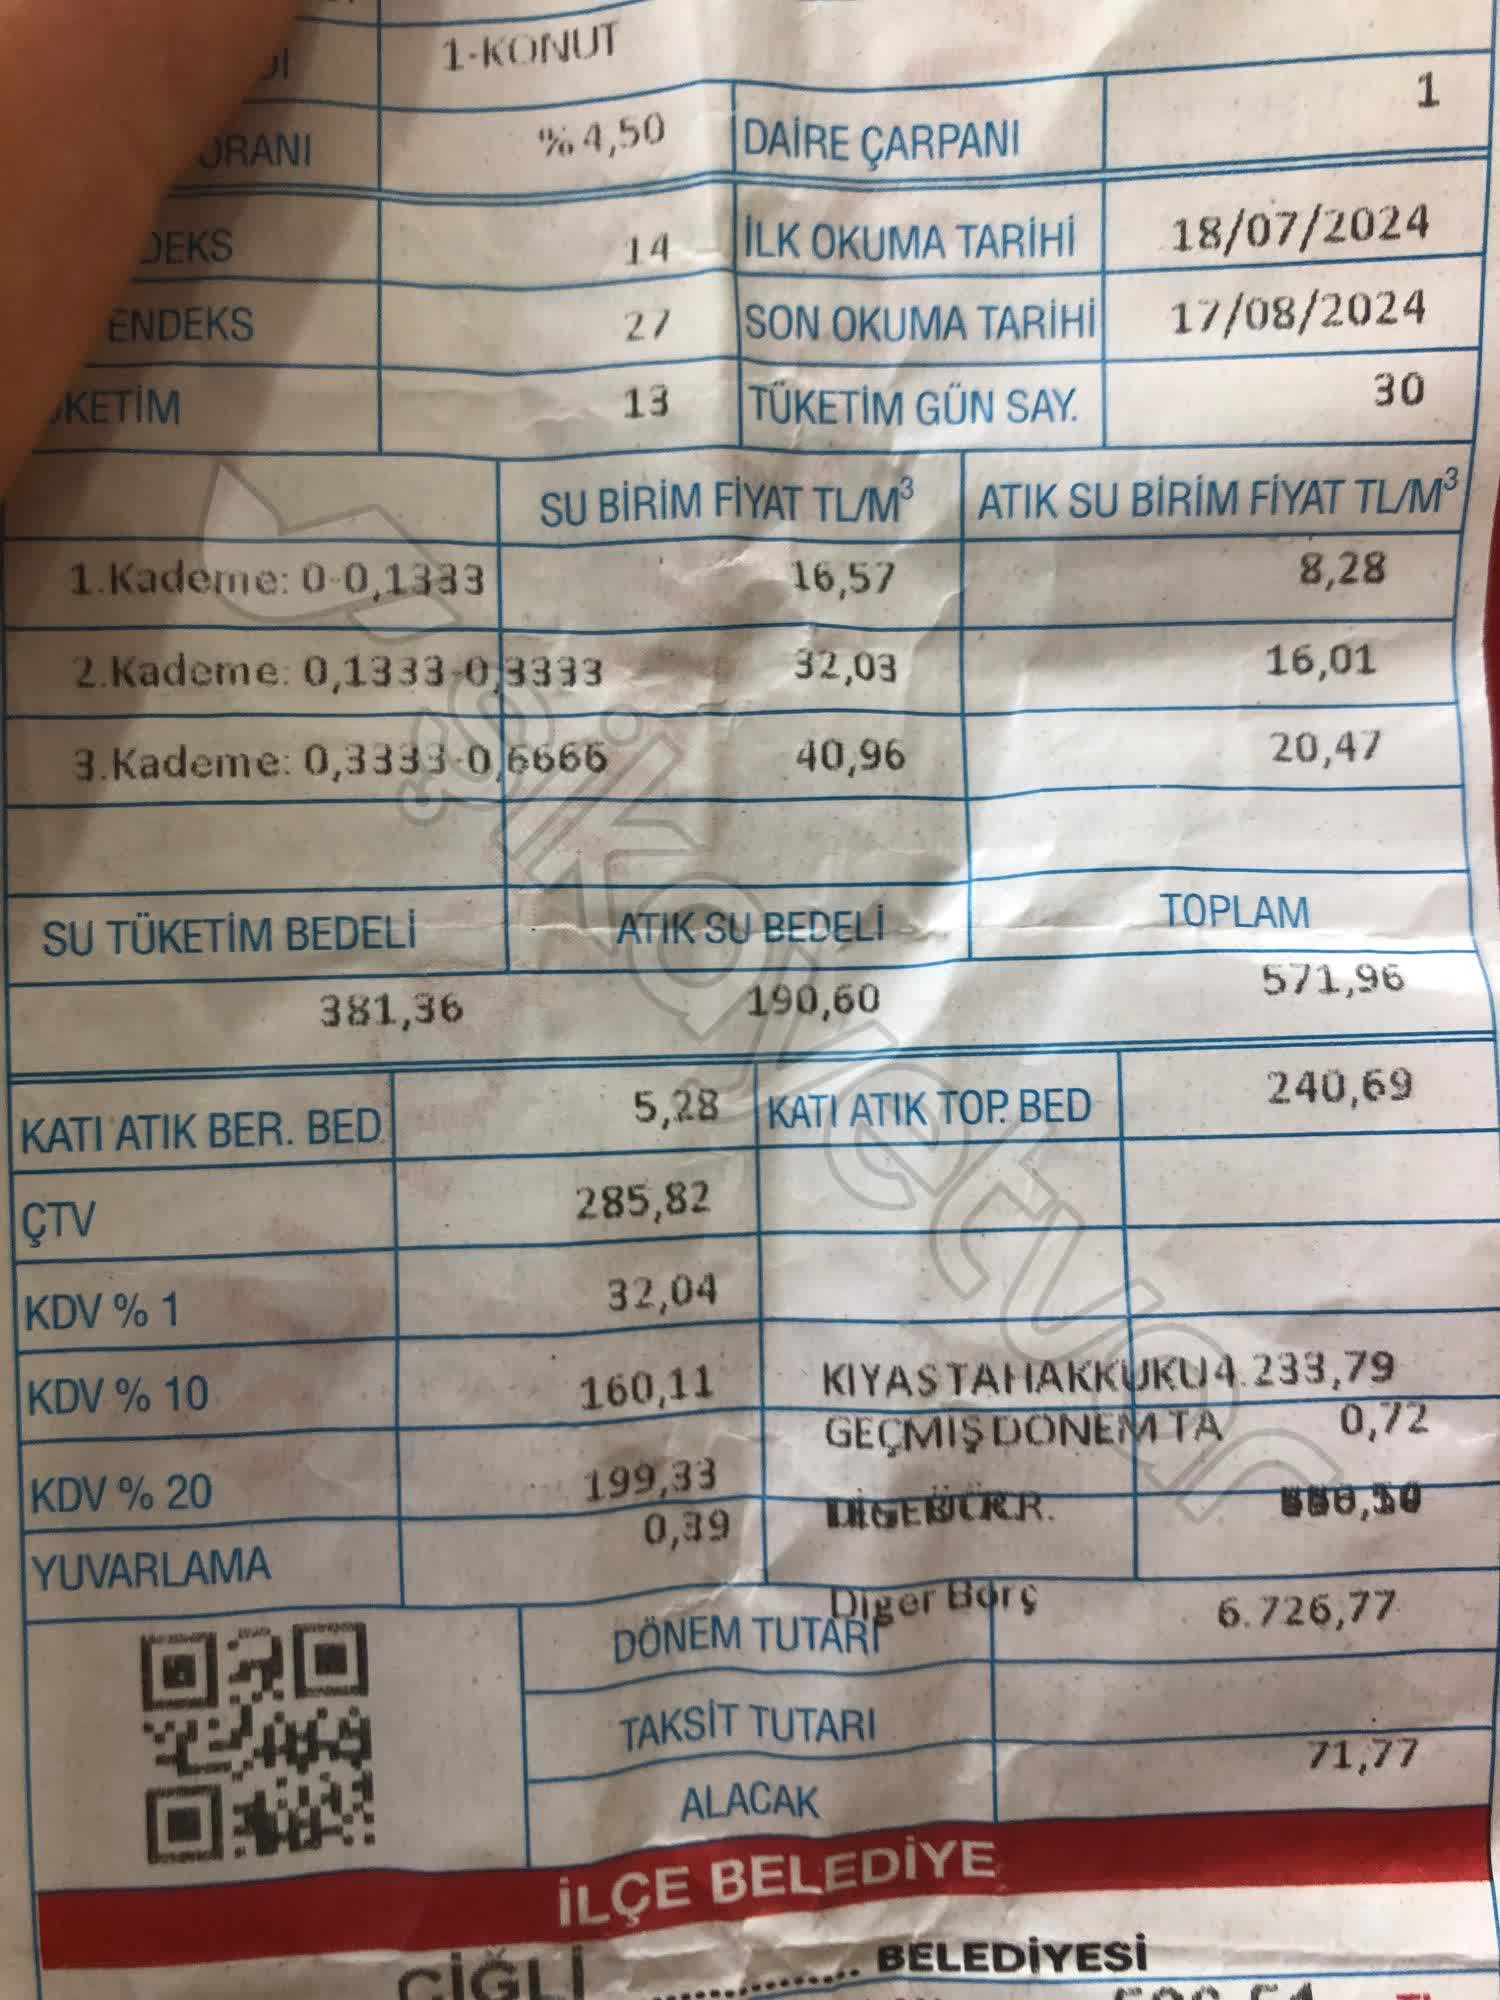 1-KONUT
ORANI %4,50 DAİRE ÇARPANI 1
DEKS 14 İLK OKUMA TARİHİ 18/07/2024
ENDEKS 27 SON OKUMA TARİHİ 17/08/2024
KETİM 13 TÜKETİM GÜN SAY. 30
SU BİRİM FİYAT TL/M³ ATIK SU BİRİM FİYAT TL/M³
1.Kademe: 0-0,1333 16,57 8,28
2.Kademe: 0,1333-0,3333 32,03 16,01
3.Kademe: 0,3333-0,6666 40,96 20,47
SU TÜKETİM BEDELİ ATIK SU BEDELİ TOPLAM
381,36 190,60 571,96
KATI ATIK BER. BED 5,28 KATI ATIK TOP. BED 240,69
ÇTV 285,82
KDV % 1 32,04
KDV % 10 160,11 KIYAS TAHAKKUKU 4.233,79
GEÇMİŞ DÖNEM TA 0,72
KDV % 20 199,33
YUVARLAMA 0,39
Diğer Borç
DÖNEM TUTARI 6.726,77
TAKSİT TUTARI
ALACAK 71,77
İLÇE BELEDİYE
ÇİĞLİ .............. BELEDİYESİ
şikayetvar